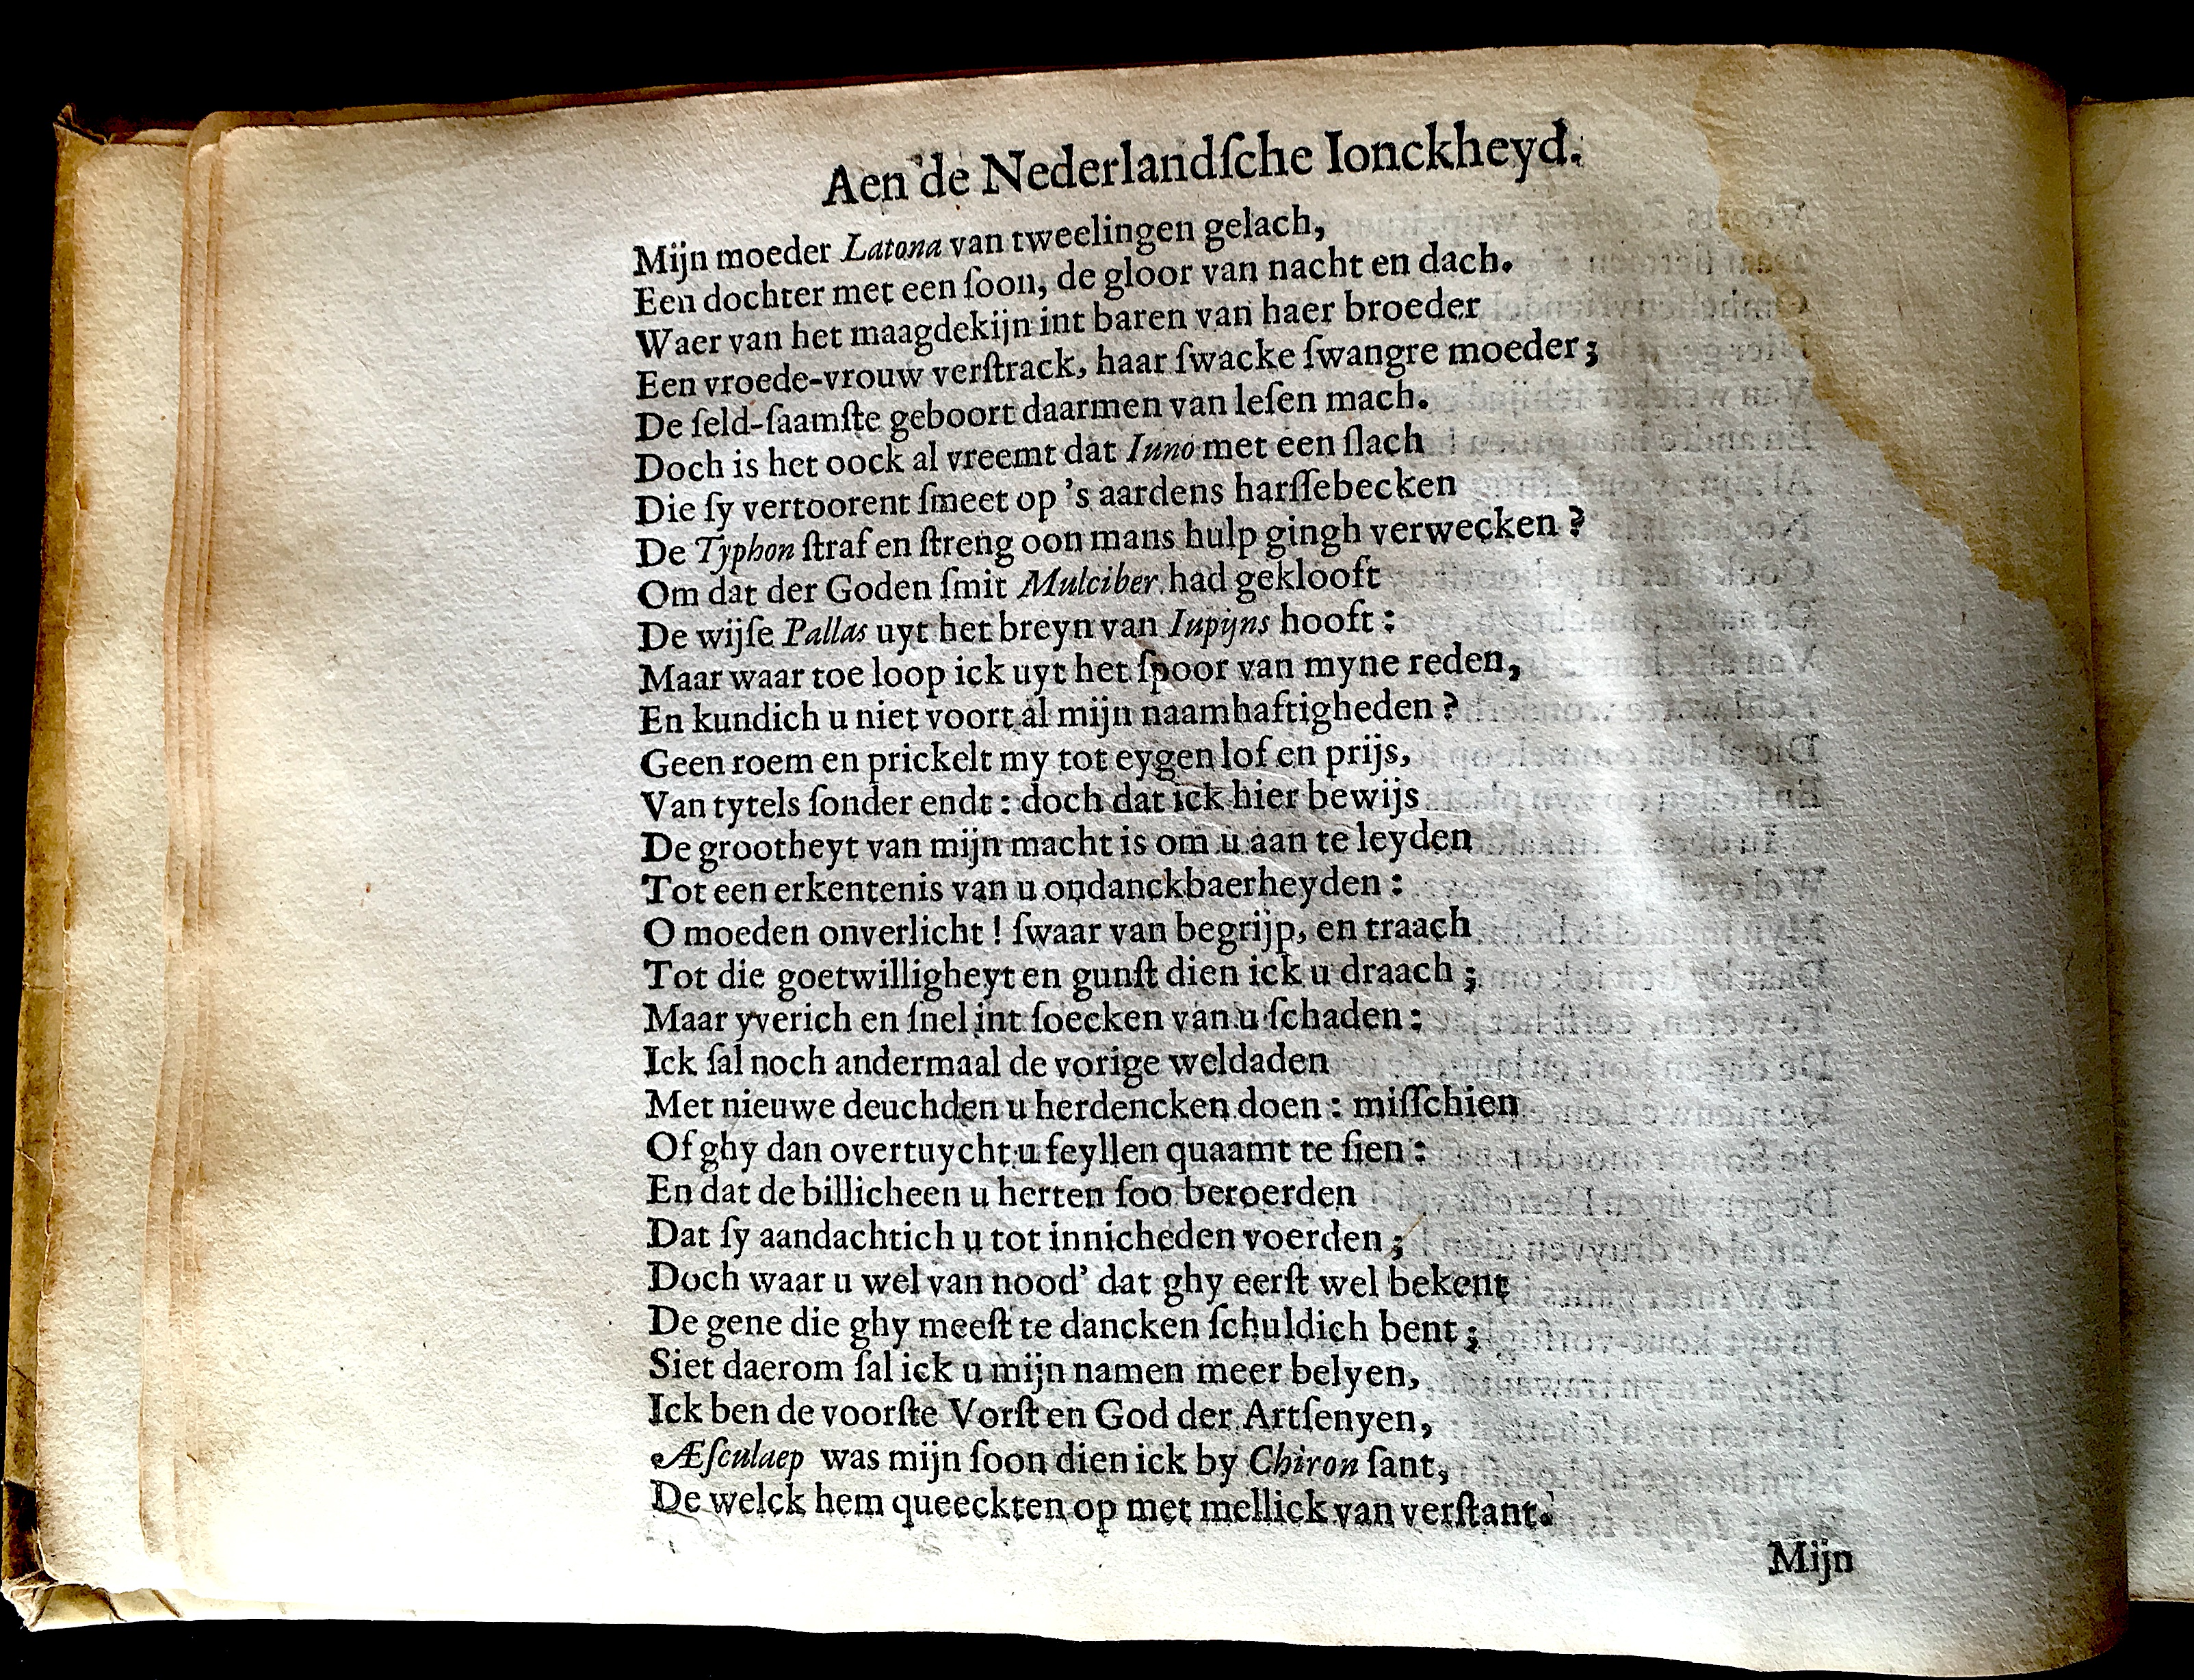 Aen de Nederlandſche Ionckheyd.
Mijn moeder Latona van tweelingen gelach,
Een dochter met een ſoon, de gloor van nacht en dach.
Waer van het maagdekijn int baren van haer broeder
Een vroede-vrouw verſtrack, haar ſwacke ſwangre moeder;
De ſeld-ſaamſte geboort daarmen van leſen mach.
Doch is het oock al vreemt dat Iuno met een ſlach
Die ſy vertoorent ſmeet op 's aardens harſſebecken
De Typhon ſtraf en ſtreng oon mans hulp gingh verwecken?
Om dat der Goden ſmit Mulciber had geklooft
De wijſe Pallas uyt het breyn van Iupijns hooft:
Maar waar toe loop ick uyt het ſpoor van myne reden,
En kundich u niet voort al mijn naamhaftigheden?
Geen roem en prickelt my tot eygen lof en prijs,
Van tytels ſonder endt: doch dat ick hier bewijs
De grootheyt van mijn macht is om u aan te leyden
Tot een erkentenis van u ondanckbaerheyden:
O moeden onverlicht! ſwaar van begrijp, en traach
Tot die goetwilligheyt en gunſt dien ick u draach;
Maar yverich en ſnel int ſoecken van u ſchaden:
Ick ſal noch andermaal de vorige weldaden
Met nieuwe deuchden u herdencken doen: miſſchien
Of ghy dan overtuycht u feyllen quaamt te ſien:
En dat de billicheen u herten ſoo beroerden
Dat ſy aandachtich u tot innicheden voerden;
Doch waar u wel van nood' dat ghy eerſt wel bekent
De gene die ghy meeſt te dancken ſchuldich bent;
Siet daerom ſal ick u mijn namen meer belyen,
Ick ben de voorſte Vorſt en God der Artſenyen,
Æſculaep was mijn ſoon dien ick by Chiron ſant,
De welck hem queeckten op met mellick van verſtant.
Mijn